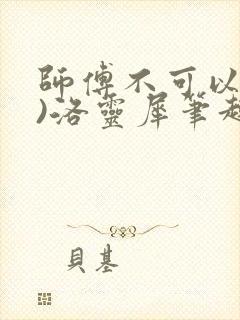 師傅不可以
)洛靈犀筆趣
貝基